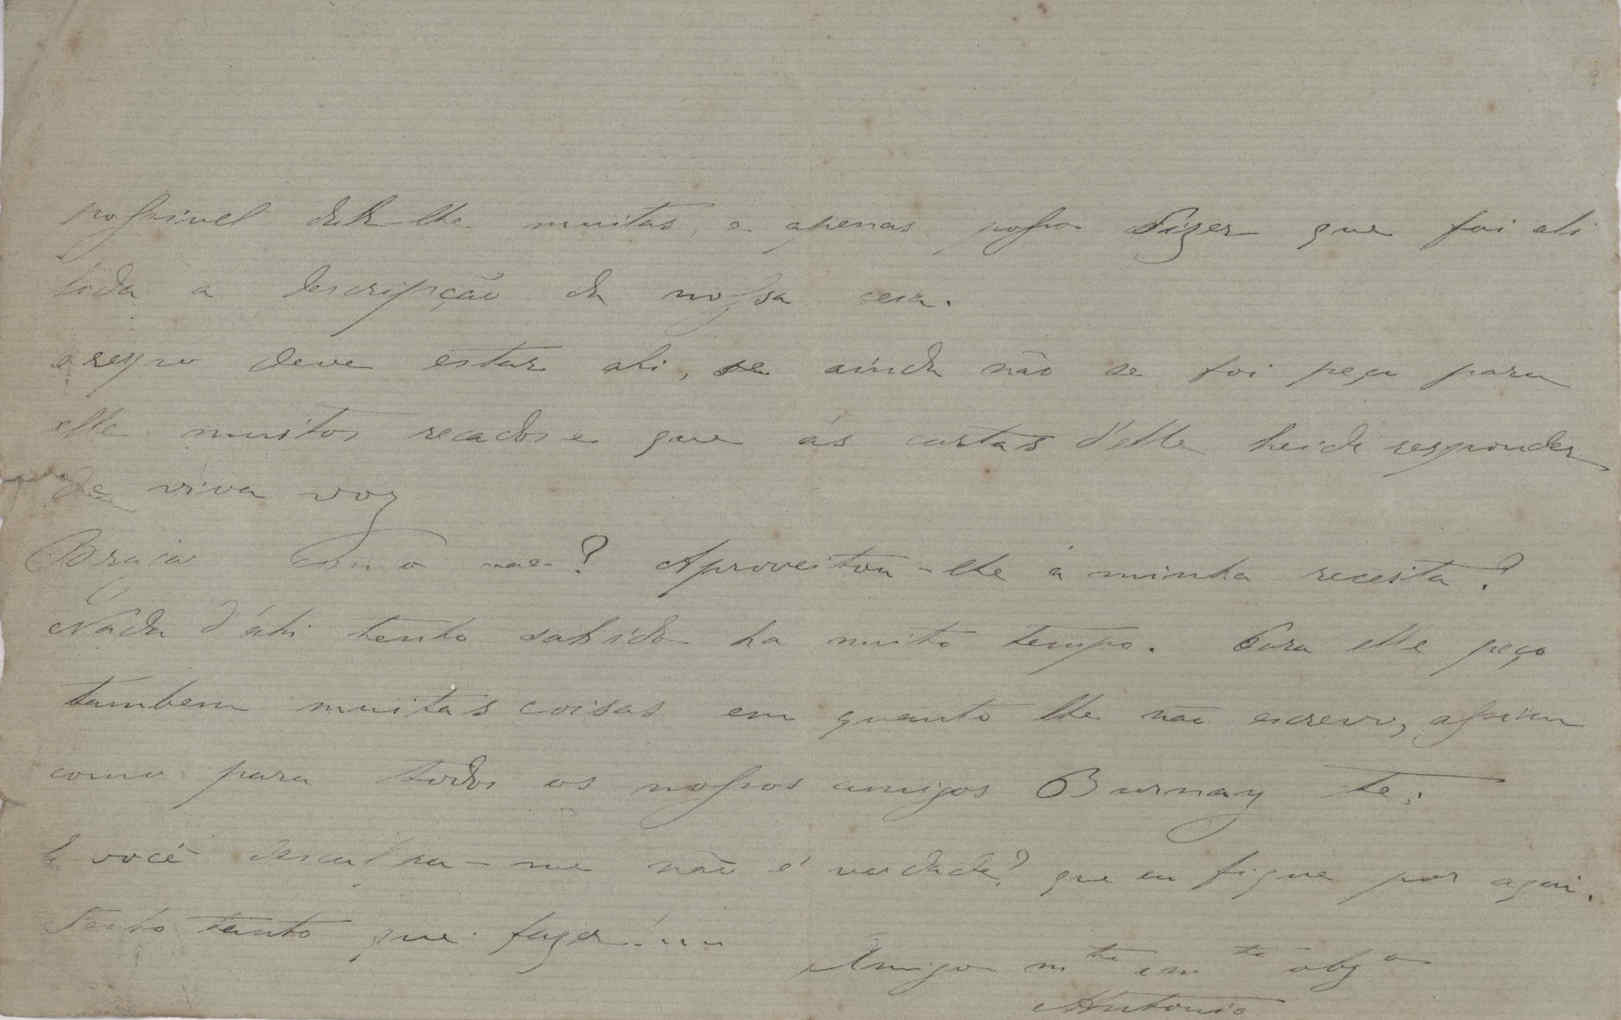 possivel dar-lhe muitas, e apenas posso dizer que foi ali
toda a descripção da nossa ceia.
deve estar ahi, se ainda não se foi peça para
elle muitos recados e que ás cartas d'elle heide responder
de viva voz
como vae? Aproveitou-lhe a minha receita?
Nada d'ahi tenho sabido ha muito tempo. Para elle peço
tambem muitas coisas em quanto lhe não escrevo, assim
como para todos os nossos amigos Burnay etc.
E você desculpa-me não é verdade? que eu fique por aqui.
Tenho tanto que fazer!...
Amigo m.to obg.o
Antonio